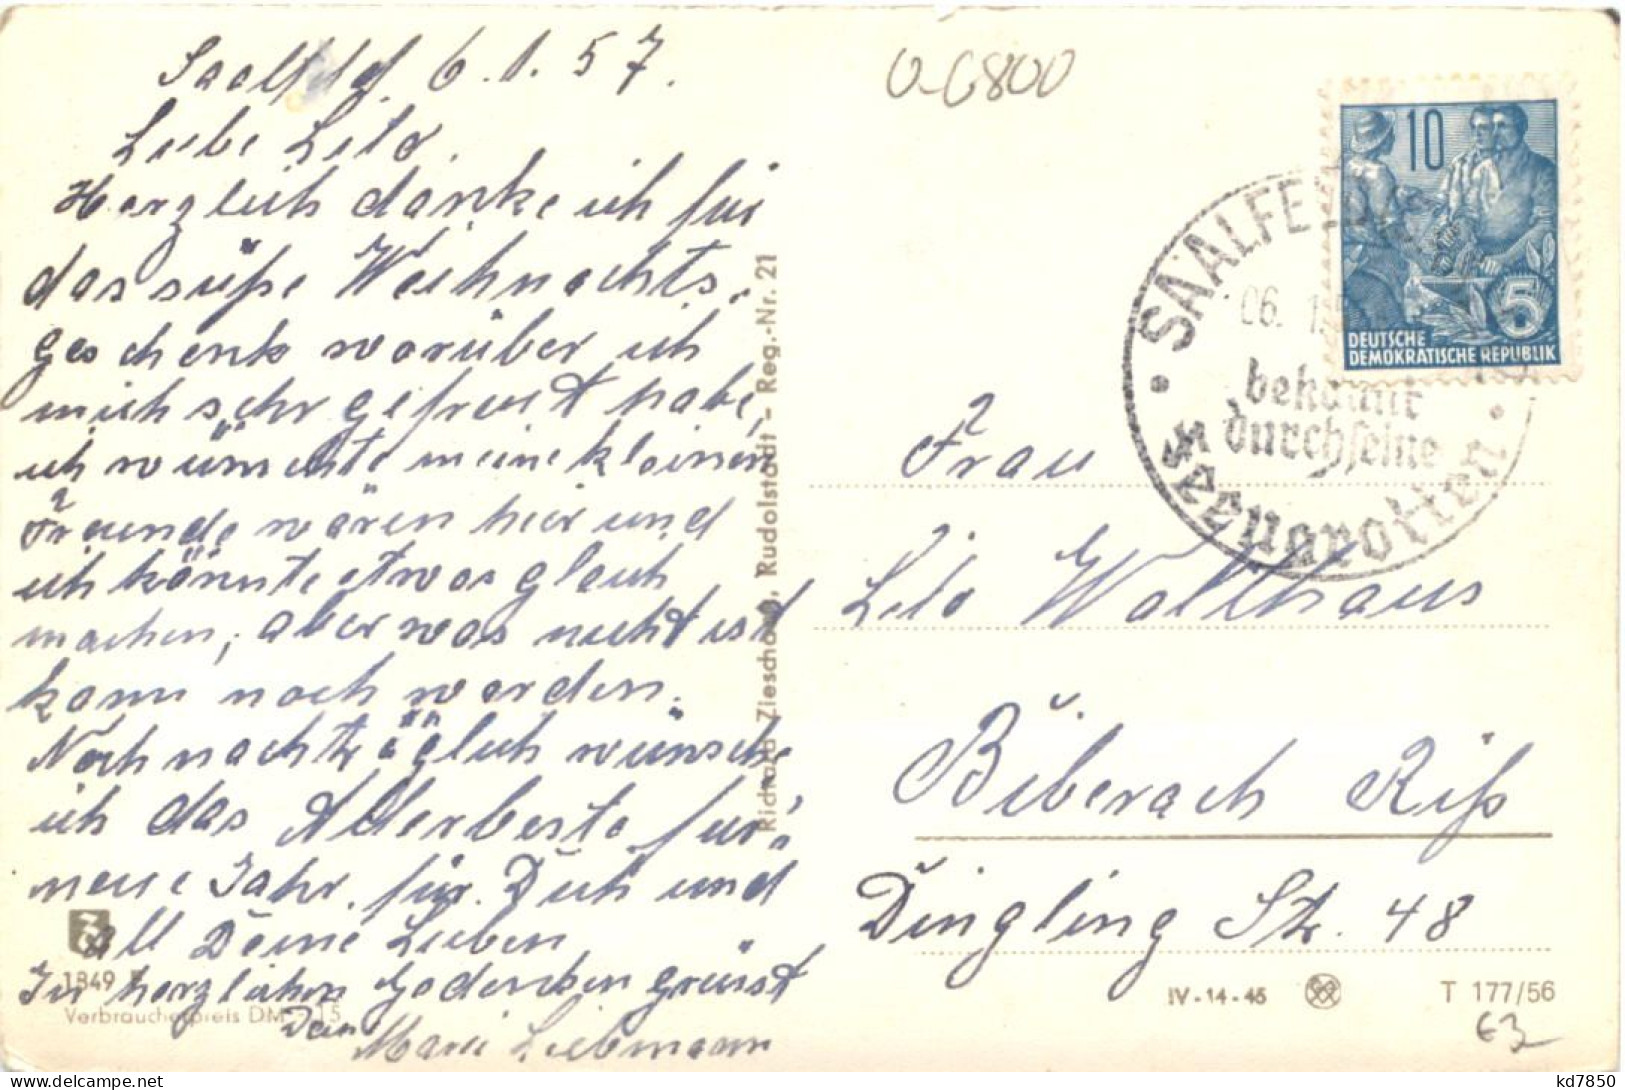 Saalfeld, 6.1.57.
Liebe Lilo.
Herzlich danke ich für
das süße Weihnachts-
geschenk worüber ich
mich sehr gefreut habe,
ich wünschte meine kleinen
Freunde wären hier und
ich könnte etwas gleich
machen, aber was nicht ist
kann noch werden.
Noch nachträglich wünsche
ich das Allerbeste fürs
neue Jahr, für Dich und
all Deine Lieben
In herzlichen Gedenken grüsst
Dein
Marie Liebmann
1849
Verbraucherpreis DM -,15
Richard Zieschang, Rudolstadt - Reg.-Nr. 21
O-6800
10
5
DEUTSCHE
DEMOKRATISCHE REPUBLIK
SAALFELD
06. 1.
bekannt
durch seine
Feengrotten
Frau
Lilo Wallhaus
Biberach Riß
Dingling Str. 48
IV-14-45
T 177/56
€3
kd7850